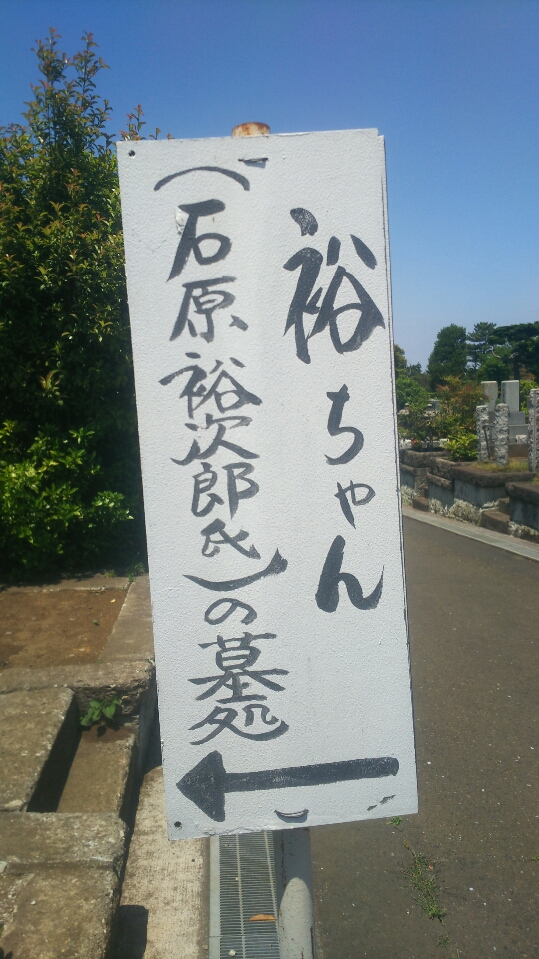 裕ちゃん
(石原裕次郎氏)の墓処